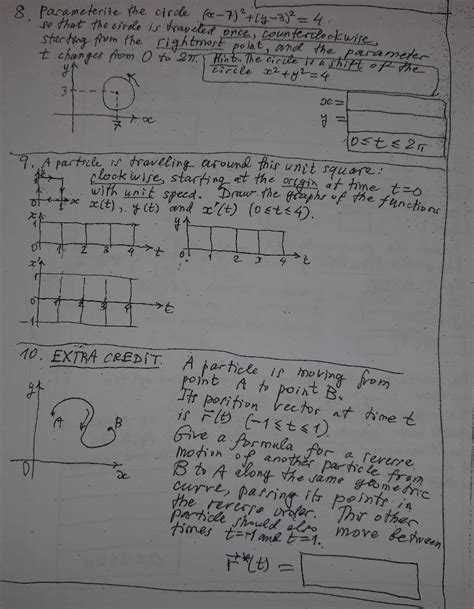 8. Parameterize the circle (x-7)²+(y-3)²=4
so that the circle is traveled once, counterclockwise,
starting from the rightmost point, and the parameter
t changes from 0 to 2π. Hint. The circle is a shift of the
circle x²+y²=4
y
3
7
x
x=
y=
0≤t≤2π
9. A particle is traveling around this unit square:
clockwise, starting at the origin at time t=0
with unit speed. Draw the graphs of the functions
x(t), y(t) and x'(t) (0≤t≤4).
0 1 2 3 4 t
y
0 1 2 3 4 t
x'
1
0 1 2 3 4 t
-1
10. EXTRA CREDIT.
A particle is moving from
point A to point B.
Its position vector at time t
is r⃗(t) (-1≤t≤1).
Give a formula for a reverse
motion of another particle from
B to A along the same geometric
curve, passing its points in
the reverse order. This other
particle should also move between
times t=-1 and t=1.
y
A
B
0
x
r⃗*(t) =